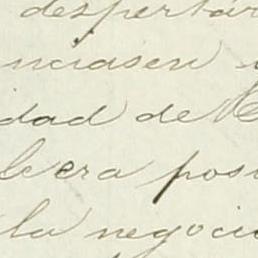 despertar
nciasen
idad de
era pos
la negoci